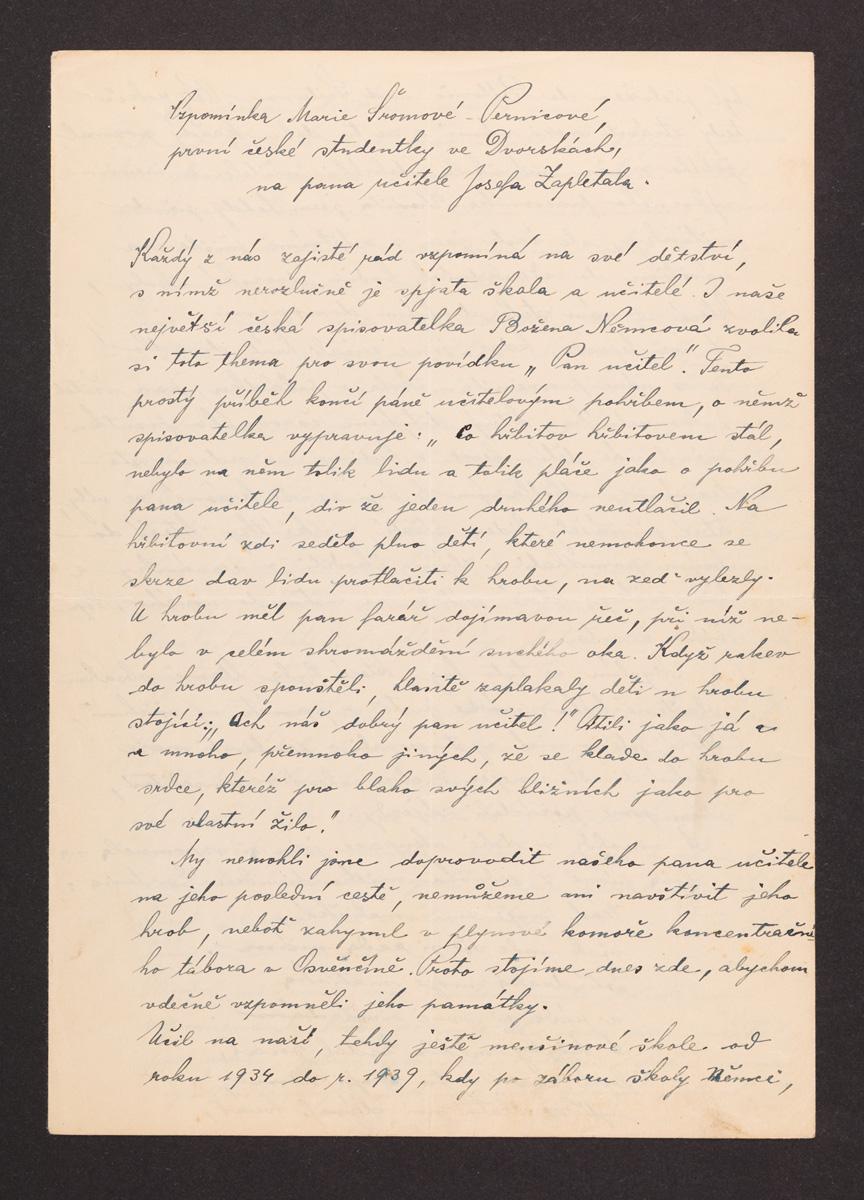 Vzpomínka Marie Šromové - Pernicové,
první české studentky ve Dvorskách,
na pana učitele Josefa Zapletala.
Každý z nás zajisté rád vzpomíná na své dětství,
s nímž nerozlučně je spjata škola a učitelé. I naše
největší česká spisovatelka Božena Němcová zvolila
si toto thema pro svou povídku „Pan učitel". Tento
prostý příběh končí páně učitelovým pohřbem, o němž
spisovatelka vypravuje: „Co hřbitov hřbitovem stál,
nebylo na něm tolik lidu a tolik pláče jako o pohřbu
pana učitele, div že jeden druhého neutlačil. Na
hřbitovní zdi sedělo plno dětí, které nemohouce se
skrze dav lidu protlačiti k hrobu, na zeď vylezly.
U hrobu měl pan farář dojímavou řeč, při níž ne-
bylo v celém shromáždění suchého oka. Když rakev
do hrobu spouštěli, hlasitě zaplakaly děti u hrobu
stojící: „Ach náš dobrý pan učitel!" Cítili jako já a
a mnoho, přemnoho jiných, že se klade do hrobu
srdce, kteréž pro blaho svých bližních jako pro
své vlastní žilo."
My nemohli jsme doprovodit našeho pana učitele
na jeho poslední cestě, nemůžeme ani navštívit jeho
hrob, neboť zahynul v plynové komoře koncentrační
ho tábora v Osvěnčíně. Proto stojíme dnes zde, abychom
vděčně vzpomněli jeho památky.
Učil na naší, tehdy ještě menšinové škole od
roku 1934 do r. 1939, kdy po záboru školy Němci,